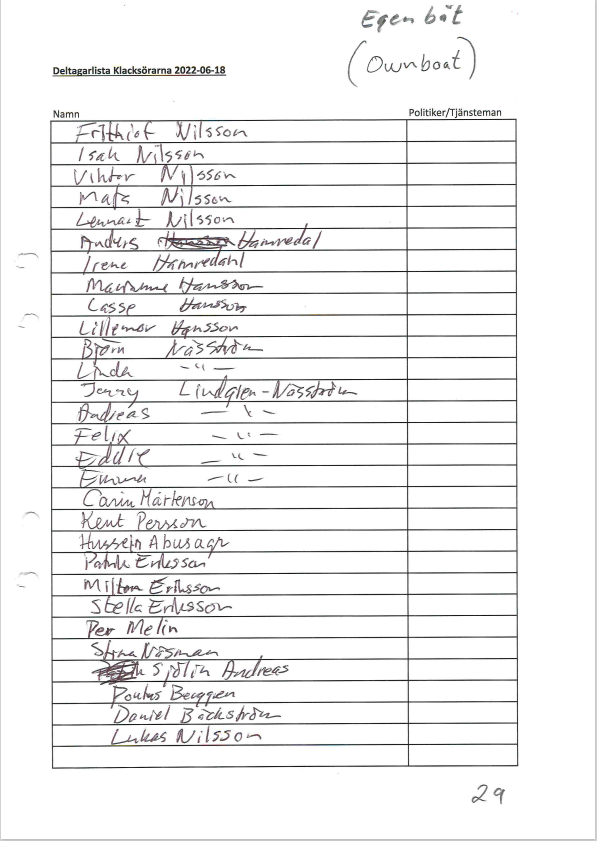 Egen båt
(Ownboat)
Deltagarlista Klacksörarna 2022-06-18
Namn Politiker/Tjänsteman
Frithiof Nilsson
Isak Nilsson
Viktor Nilsson
Mats Nilsson
Lennart Nilsson
Anders Hamredal
Irene Hamredahl
Marianne Hansson
Lasse Hansson
Lillemor Hansson
Björn Näsström
Linda -"-
Jenny Lindgren-Näsström
Andreas -"-
Felix -"-
Eddie -"-
Emma -"-
Carin Mårtenson
Kent Persson
Hussein Abusagr
Patrik Eriksson
Milton Eriksson
Stella Eriksson
Per Melin
Stina Näsman
Sjölin Andreas
Pontus Berggren
Daniel Bäckström
Lukas Nilsson
29